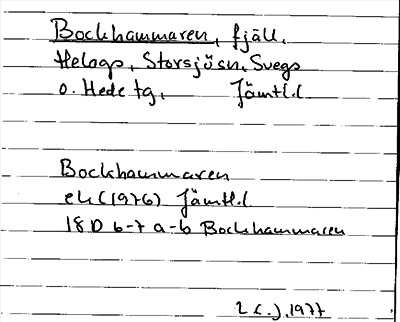 Bockhammaren, fjäll,
Helags, Storsjösn, Svegs
o. Hede tg, Jämtl.l.
Bockhammaren
ek (1976) Jämtl.l
18D 6-7 a-b Bockhammaren
1977